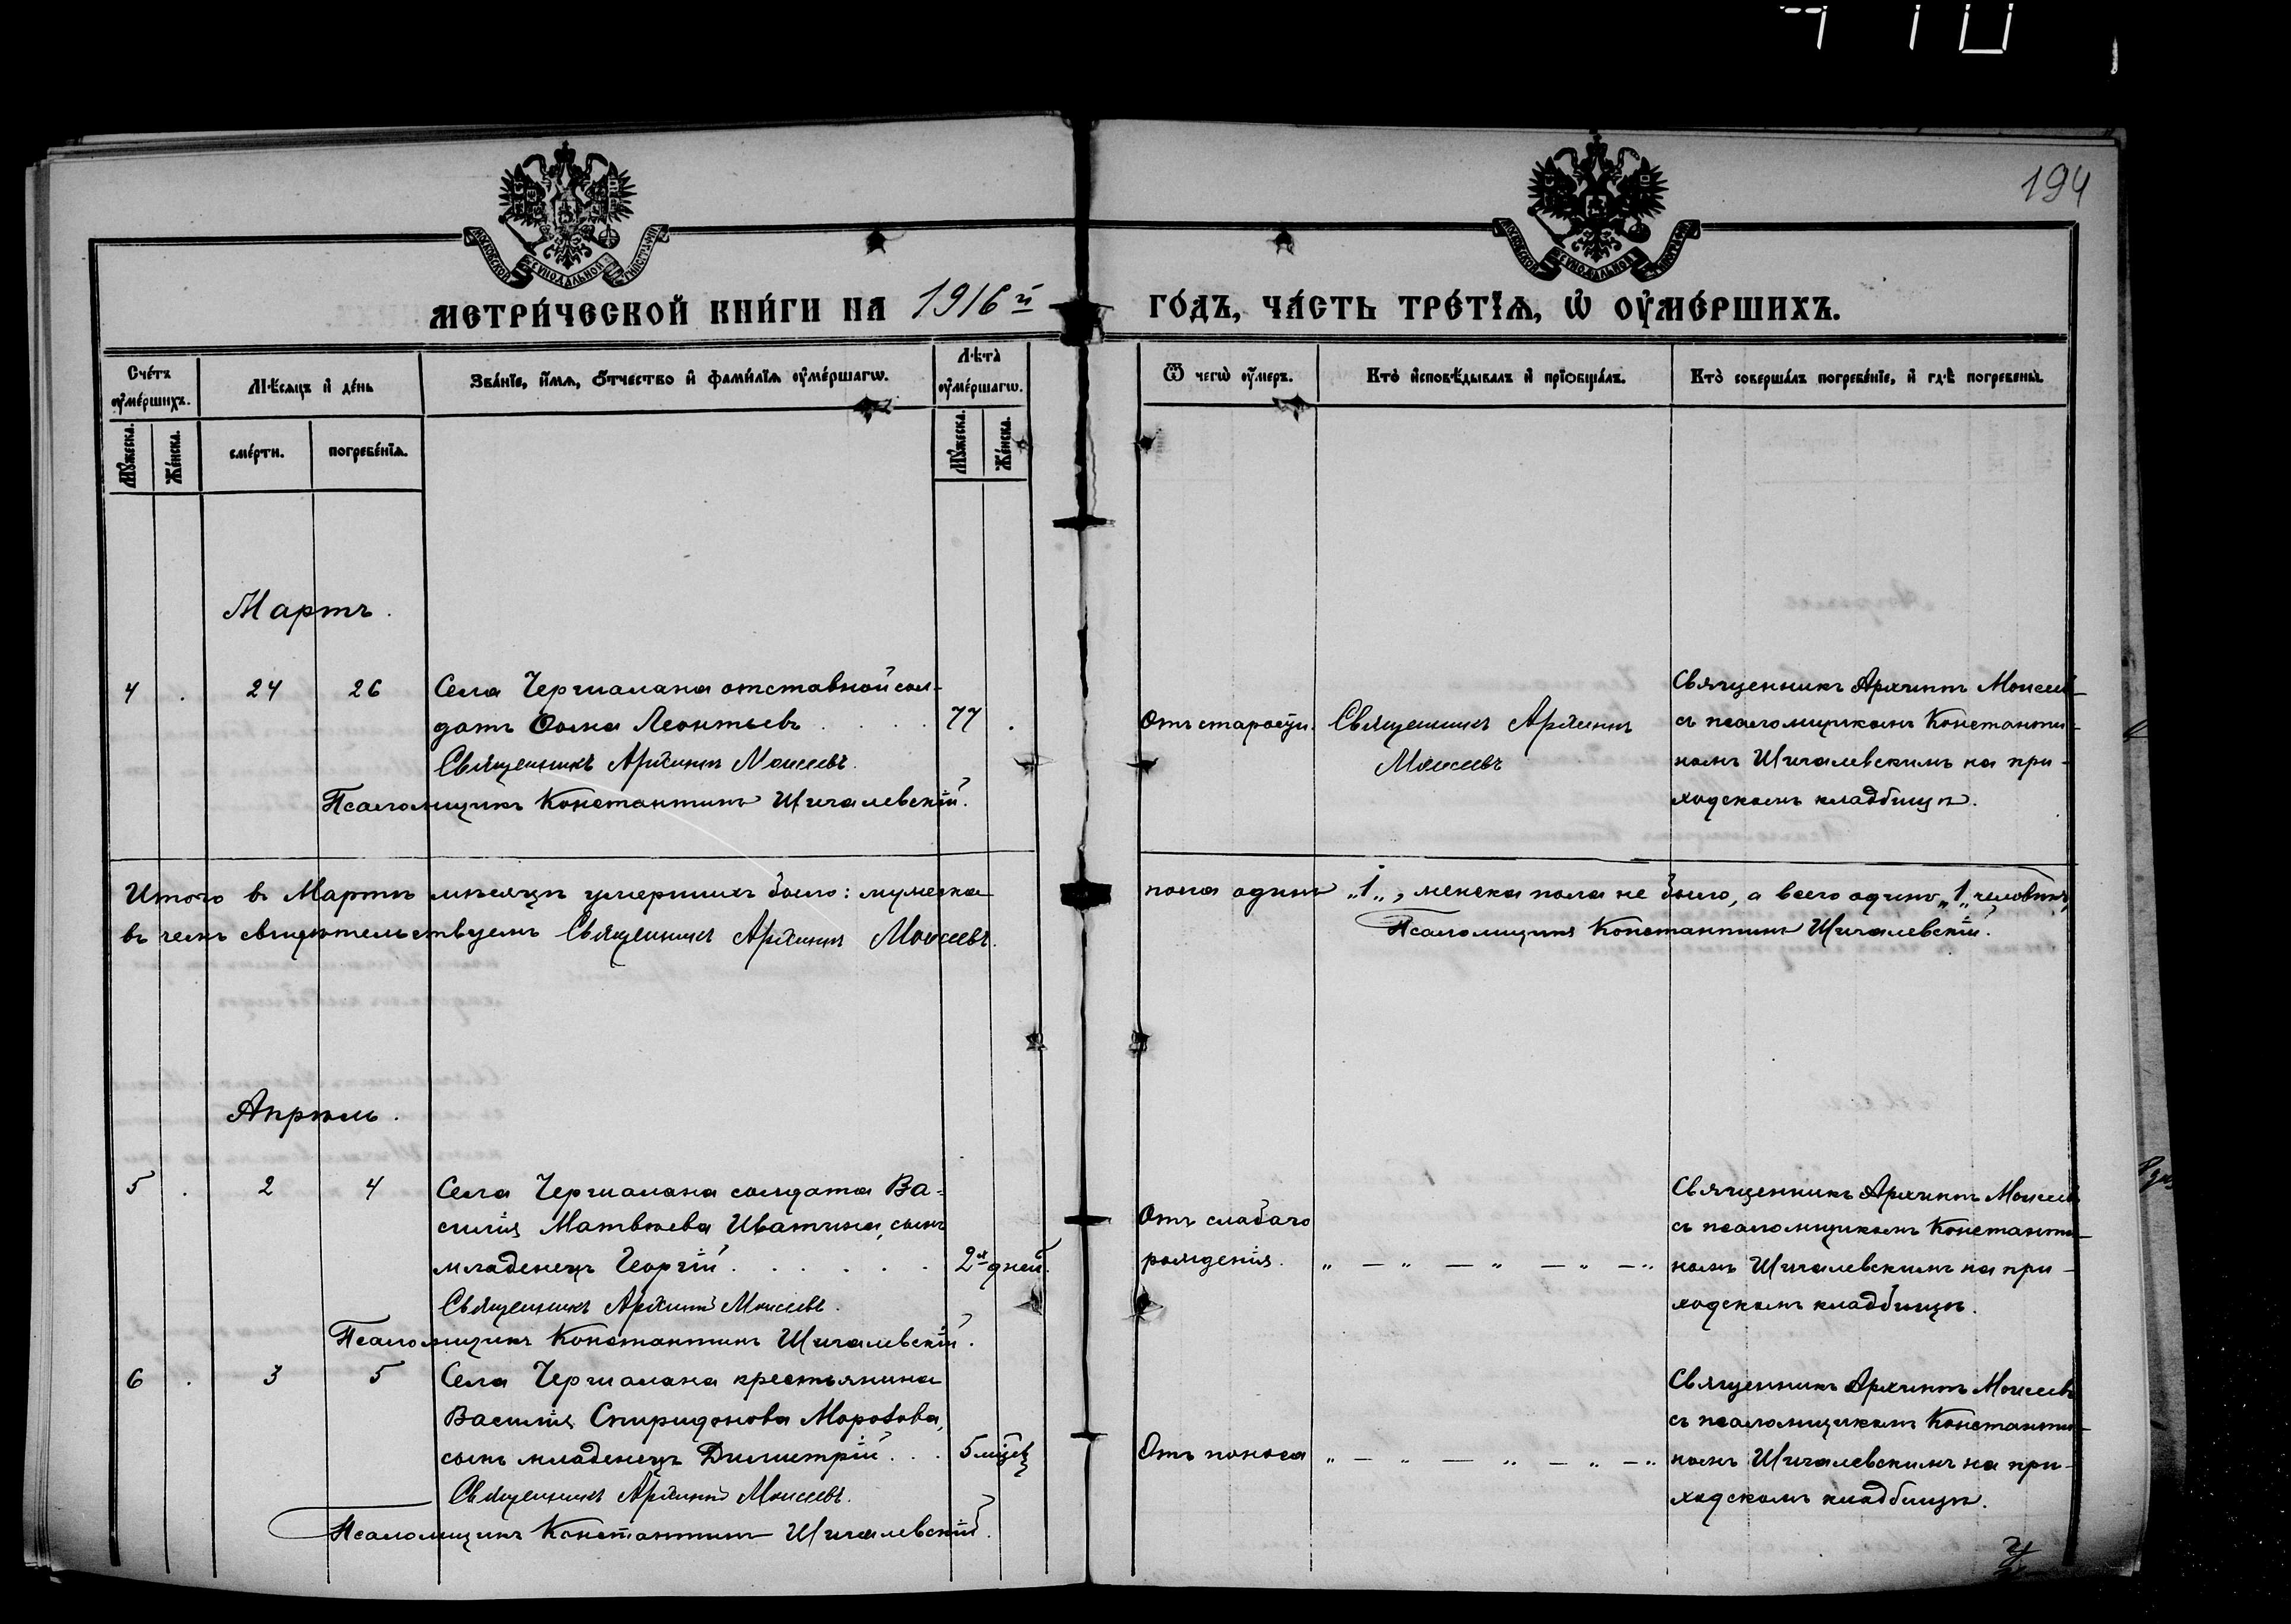 194
МОСКОВСКОЙ СѴНОДАЛЬНОЙ ТИПОГРАФІИ
МОСКОВСКОЙ СѴНОДАЛЬНОЙ ТИПОГРАФІИ
МЕТРИ́ЧЕСКОЙ КНИ́ГИ НА 1916 й ГО́ДЪ, ЧА́СТЬ ТРЕ́ТЇѦ, Ѡ҆ ОУ҆МЕ́РШИХЪ.
Сче́тъ оу҆ме́ршихъ.
Мꙋ́жеска.
Же́нска.
Мѣ́сяцъ и҆ де́нь
сме́рти.
погребе́нїѧ.
Зва́нїе, и҆́мѧ, ѻ҆́тчество и҆ фами́лїѧ оу҆ме́ршагѡ.
Лѣ́та оу҆ме́ршагѡ.
Мꙋ́жеска.
Же́нска.
Ѿ чегѡ̀ оу҆́меръ.
Кто̀ и҆сповѣ́дывалъ и҆ прїѻбща́лъ.
Кто̀ соверша́лъ погребе́нїе, и҆ гдѣ̀ погребены̀.
Мартъ.
4 . 24 26 Села Чергиалана отставной сол-
датъ Ѳома Леонтьевъ . . . 77 .
Священникъ Архиппъ Моисеевъ.
Псаломщикъ Константинъ Щигалевскій.
Отъ старости.
Священникъ Архиппъ
Моисеевъ
Священникъ Архиппъ Моисеевъ
съ псаломщикомъ Константи-
номъ Щигалевскимъ на при-
ходскомъ кладбищѣ.
Итого въ Мартѣ мѣсяцѣ умершихъ было: мужеска пола одинъ „1„, женска пола не было, а всего одинъ „1„ человѣкъ,
въ чемъ свидѣтельствуемъ Священникъ Архиппъ Моисеевъ. Псаломщикъ Константинъ Щигалевскій.
Апрѣль.
5 . 2 4 Села Чергиалана солдата Ва-
силія Матвѣева Иватина, сынъ
младенецъ Георгій . . . . . 2хъ дней.
Священникъ Архиппъ Моисеевъ.
Псаломщикъ Константинъ Щигалевскій.
Отъ слабаго
рожденія. „ — „ — „ — „ — „
Священникъ Архиппъ Моисеевъ
съ псаломщикомъ Константи-
номъ Щигалевскимъ на при-
ходскомъ кладбищѣ.
6 . 3 5 Села Чергиалана крестьянина
Василія Спиридонова Морозова,
сынъ младенецъ Димитрій . . 5 мѣсц
Священникъ Архиппъ Моисеевъ.
Псаломщикъ Константинъ Щигалевскій.
Отъ поноса „ — „ — „ — „ — „
Священникъ Архиппъ Моисеевъ
съ псаломщикомъ Константи-
номъ Щигалевскимъ на при-
ходскомъ кладбищѣ.